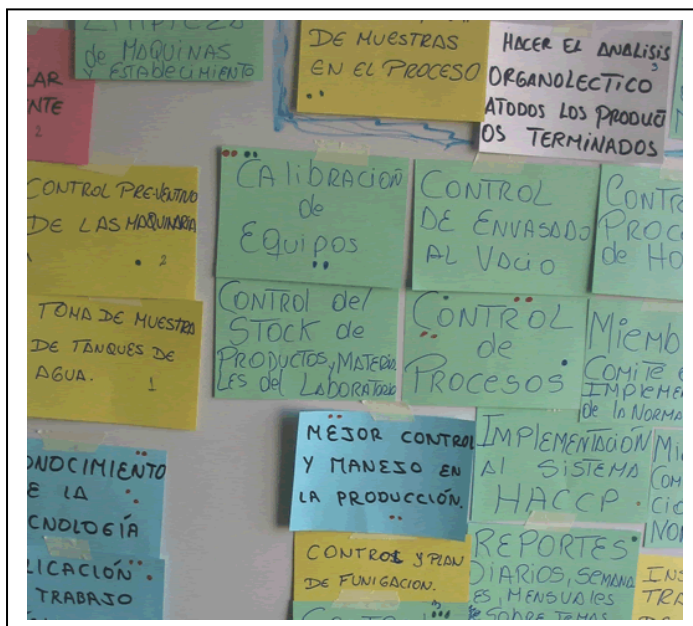 LIMPIEZA
de MAQUINAS
Y ESTABLECIMIENTO
DE MUESTRAS
EN EL PROCESO
HACER EL ANALISIS
ORGANOLECTICO
A TODOS LOS PRODUCT
OS TERMINADOS
LAR
NTE
2
CONTROL PREVENTIVO
DE LAS MAQUINARIA
2
CALIBRACIOÑ
de
EQUIPOS
CONTROL
DE ENVASADO
AL VACIO
CONTR
PROC
de HO
TOMA DE MUESTRA
DE TANQUES DE
AGUA. 1
CONTROL del
STOCK de
PRODUCTOS, MATERIA
LES del LABORATORIO
CONTROL
de
PROCESOS
MIEMB
COMITE
IMPLEMEN
de la NORMA
MEJOR CONTROL
Y MANEJO EN
LA PRODUCCIÓN.
IMPLEMENTACIÓN
AL SISTEMA
HACCP
MI
COM
CIO
NOR
ONOCIMIENTO
E LA
CNOLOGÍA
LICACIÓN
TRABAJO
CONTROL Y PLAN
DE FUNIGACION.
REPORTES
DIARIOS, SEMANA
ES, MENSUALES
SOBRE TEMAS
INS
TRA